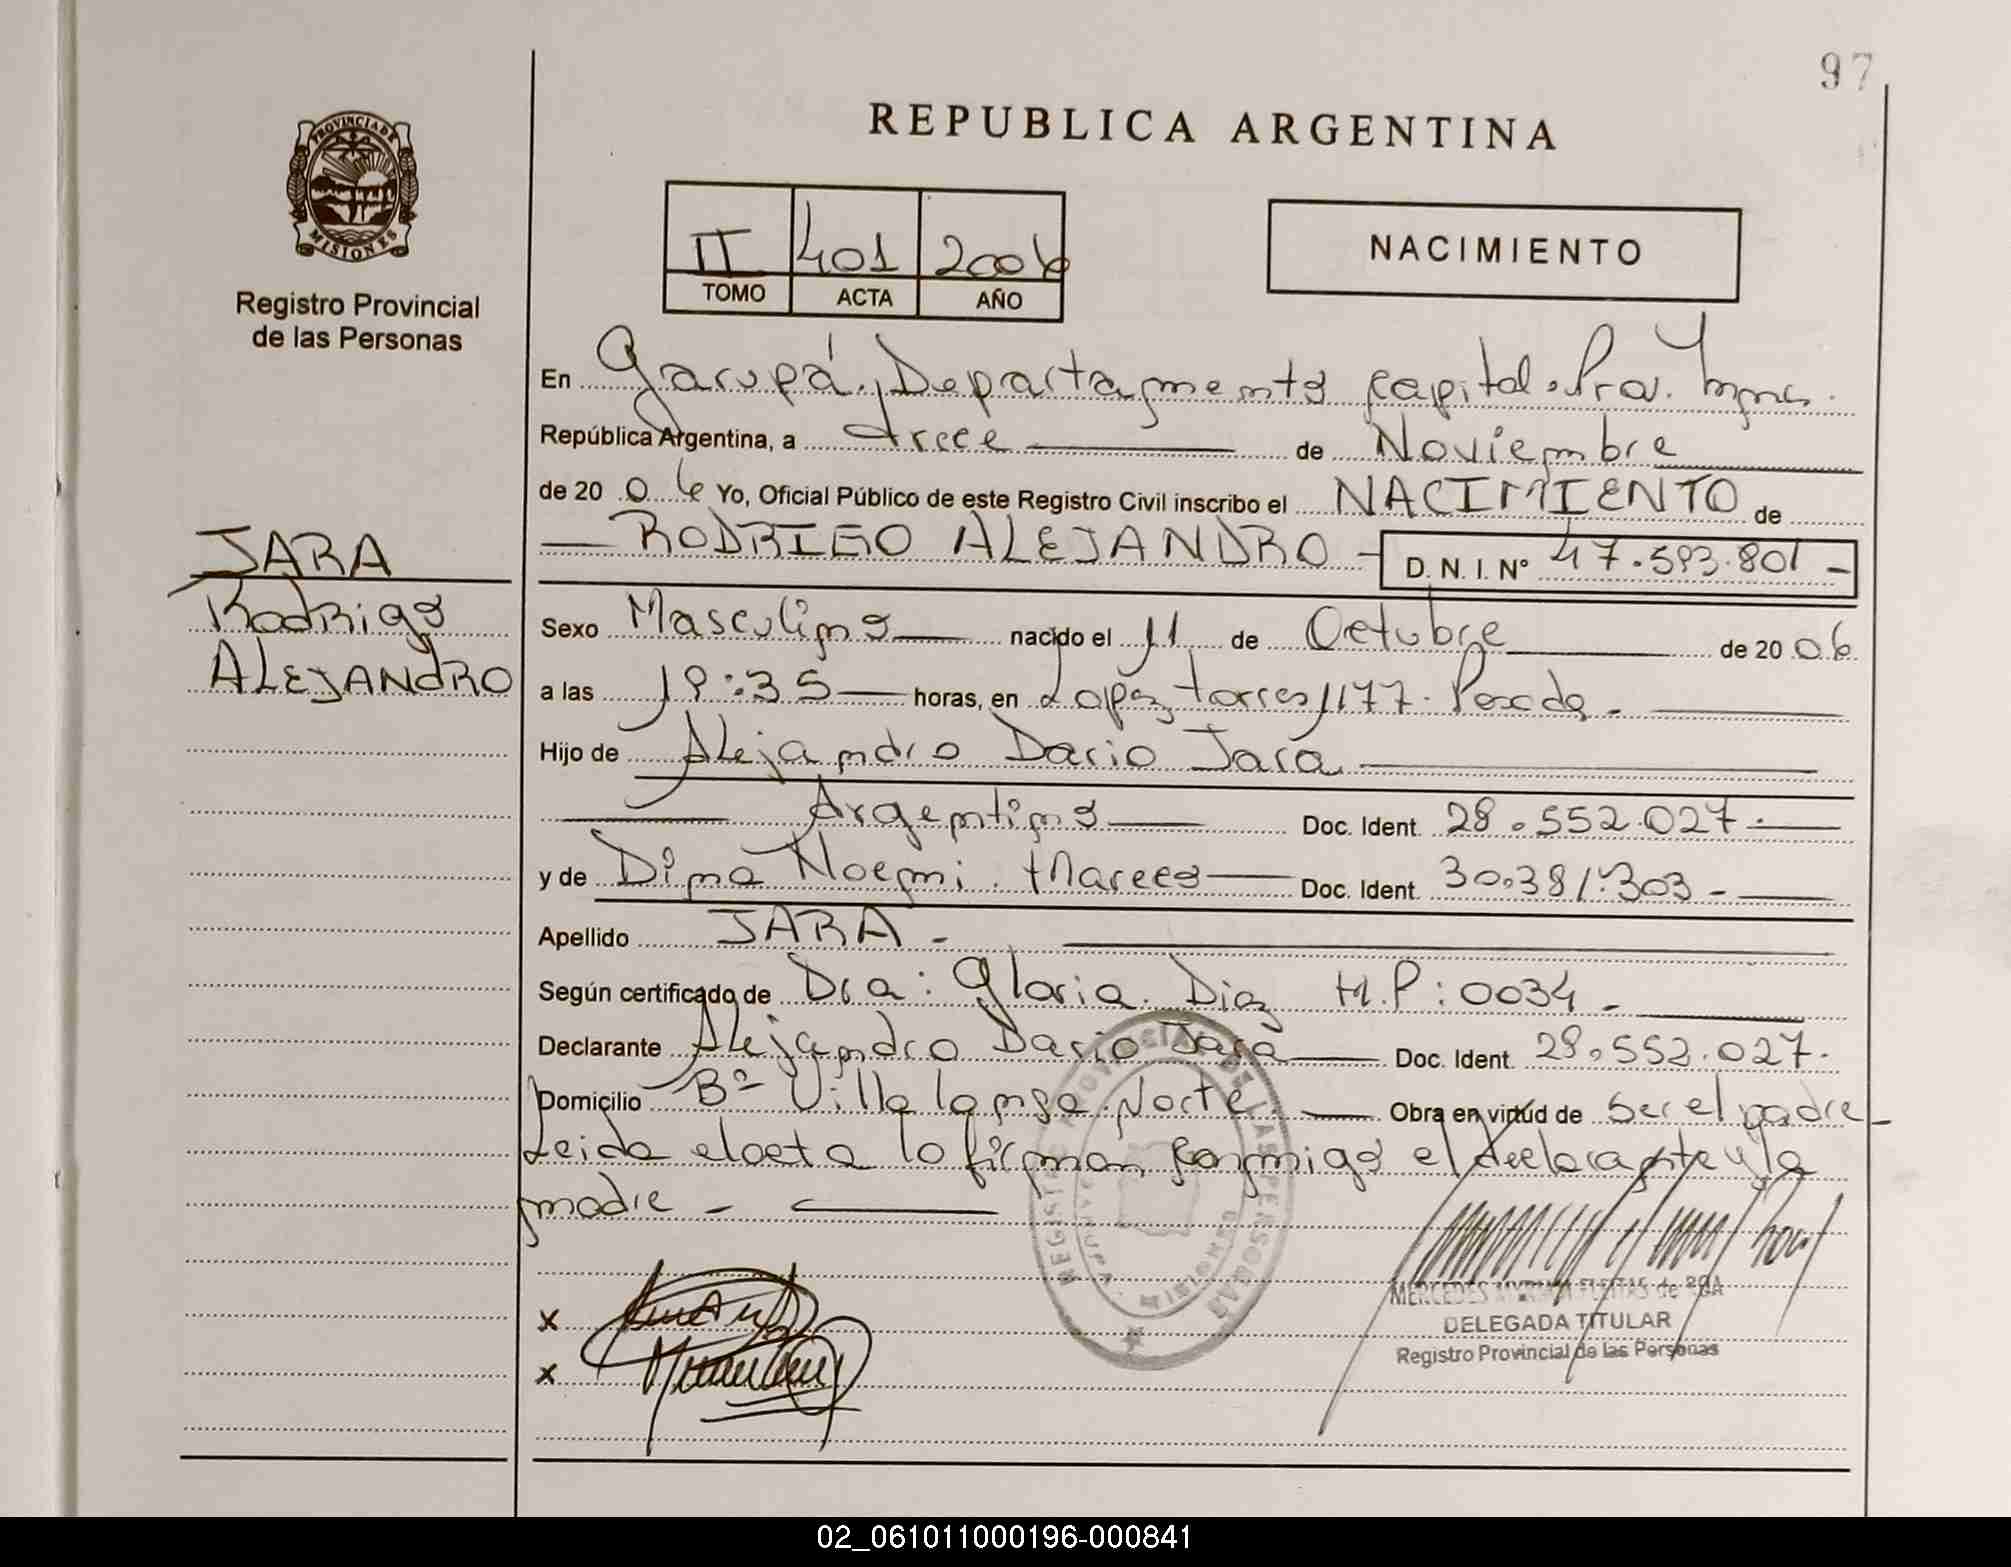 97
REPUBLICA ARGENTINA
PROVINCIA DE
MISIONES
Registro Provincial
de las Personas
II 401 2006
TOMO ACTA AÑO
NACIMIENTO
En Garupá, Departamento Capital. Prov. Mnes.
República Argentina, a trece de Noviembre
de 20 06 Yo, Oficial Público de este Registro Civil inscribo el NACIMIENTO de
JARA
Rodrigo
ALEJANDRO
RODRIGO ALEJANDRO - D. N. I. Nº 47.593.801 -
Sexo Masculino nacido el 11 de Octubre de 20 06
a las 19:35 horas, en Lopez Torres 1177. Posadas -
Hijo de Alejandro Dario Jara
Argentino Doc. Ident. 28.552.027.
y de Dina Noemi Doc. Ident. 30.381.303 -
Apellido JARA -
Según certificado de Dra: Gloria Diaz M.P: 0034 -
Declarante Alejandro Dario Jara Doc. Ident. 28.552.027.
Domicilio Bº Villalonga Norte Obra en virtud de ser el padre
Leida el acta lo firman conmigo el declarante y la
madre -
REGISTRO PROVINCIAL DE LAS PERSONAS
GARUPA MISIONES
x
x
MERCEDES FLEITAS de
DELEGADA TITULAR
Registro Provincial de las Personas
02_061011000196-000841